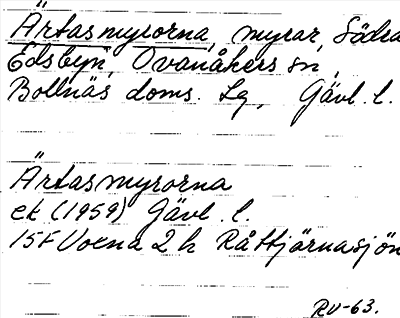 Ärtasmyrorna, myrar, Södra
Edsbyn, Ovanåkers sn,
Bollnäs doms. Lg, Gävl. l.
Ärtasmyrorna
ek (1959) Gävl. l.
15F Voxna 2 h Råttjärnasjön
RV-63.